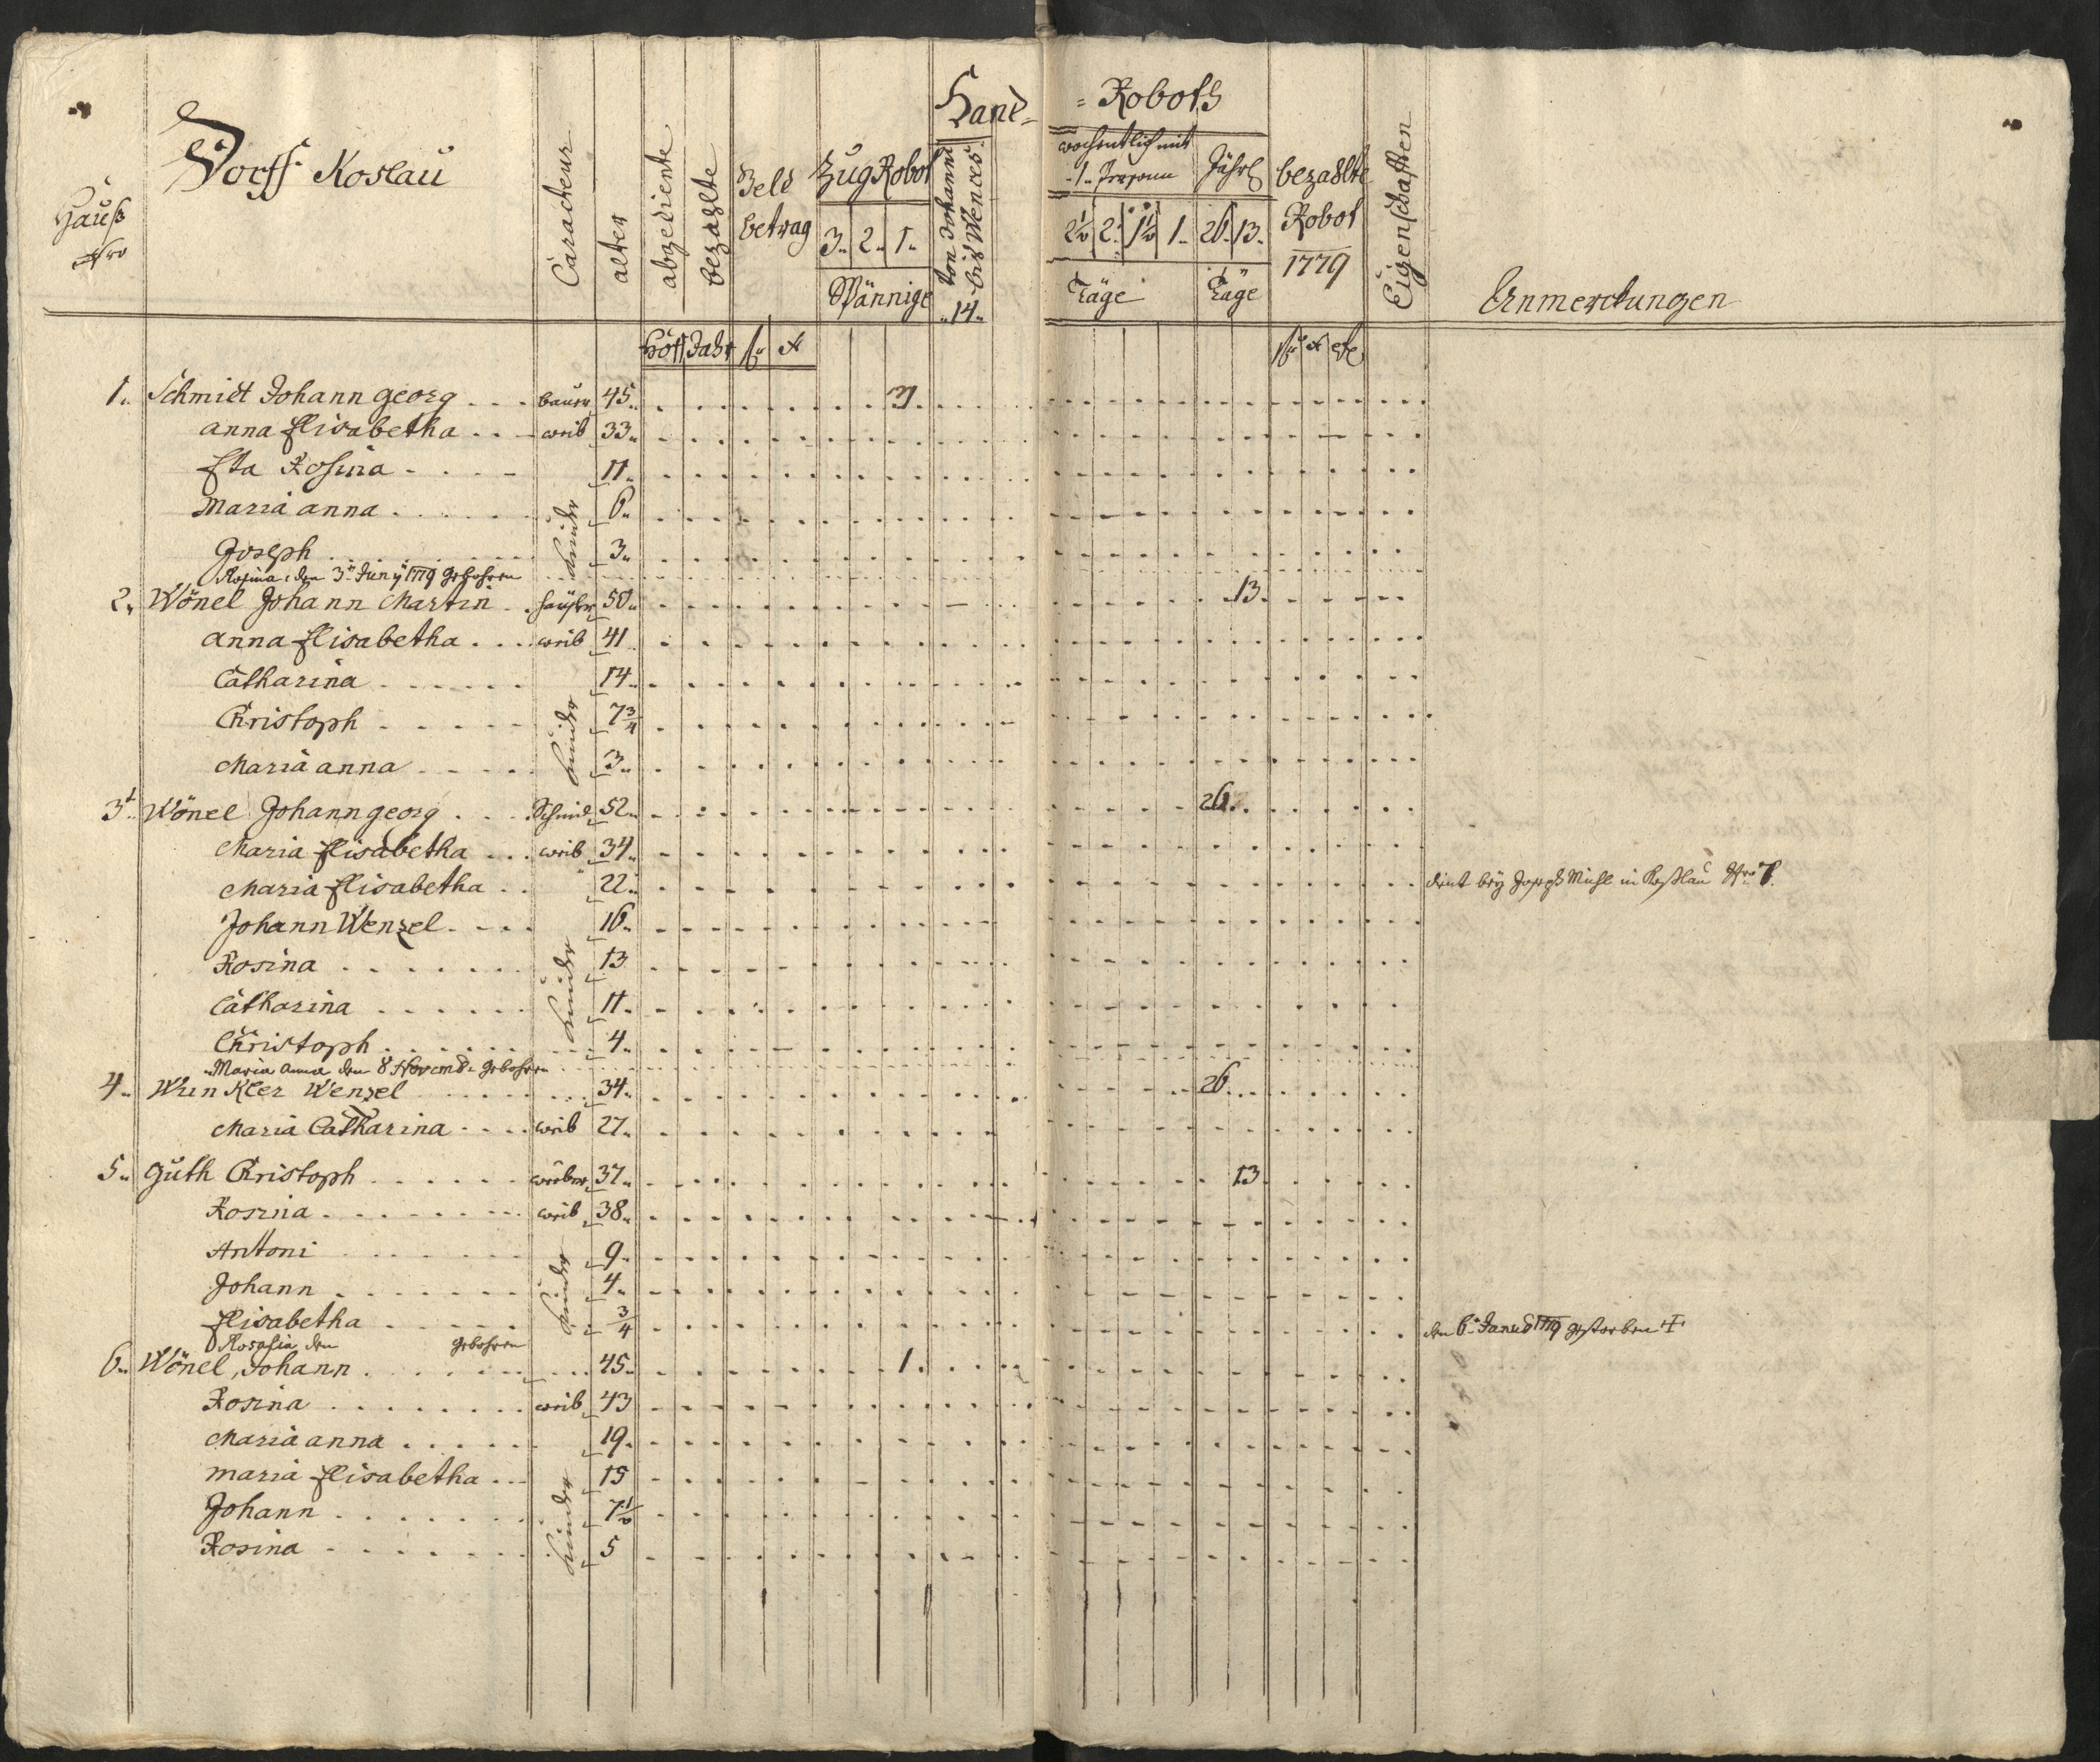 Dorff Koslau
Hauß
Nro
Caracteur
alter
abgediente
bezahlte
Geld
betrag
Zug Robot
3. 2. 1.
Spännige
Hand=
von Johanni
bis Wences:
14.
=Roboth
wochentlich mit
1. Person
Jährl
2½ 2. 1½ 1. 26. 13.
Täge
Täge
bezahlte
Robot
1779
Eigenschafften
Anmerckungen
Jahr
1. Schmidt Johann georg baur 45.. 1.
anna Elisabetha weib 33..
Rosina 11..
Maria anna 6..
Joseph 3..
kinder
Rosina, den 3n Juny 1779 gebohren
2. Wönel Johann Martin häusler 50.. 13.
anna Elisabetha weib 41
Catharina 14..
Christoph 7¾
Maria anna 3..
kinder
3t Wönel Johann georg Schmid 52.. 26.
Maria Elisabetha weib 34..
Maria Elisabetha 22.. dint bey Joseph Michl in Koßlau Nro 7.
Johann Wenzel 16..
Rosina 13
Catharina 11..
Christoph 4..
kinder
Maria Anna den 8 Novemb. gebohren
4.. Wunkler Wenzel 34.. 26.
Maria Catharina weib 27..
5.. Guth Christoph weber 37.. 13
Rosina weib 38..
Antoni 9..
Johann 4..
Elisabetha ¾ den 6. Janu 1779 gestorben
kinder
Rosalia den gebohren
6.. Wönel, Johann 45.. 1.
Rosina weib 43
Maria anna 19.
maria Elisabetha 15
Johann 7½
Rosina 5
kinder